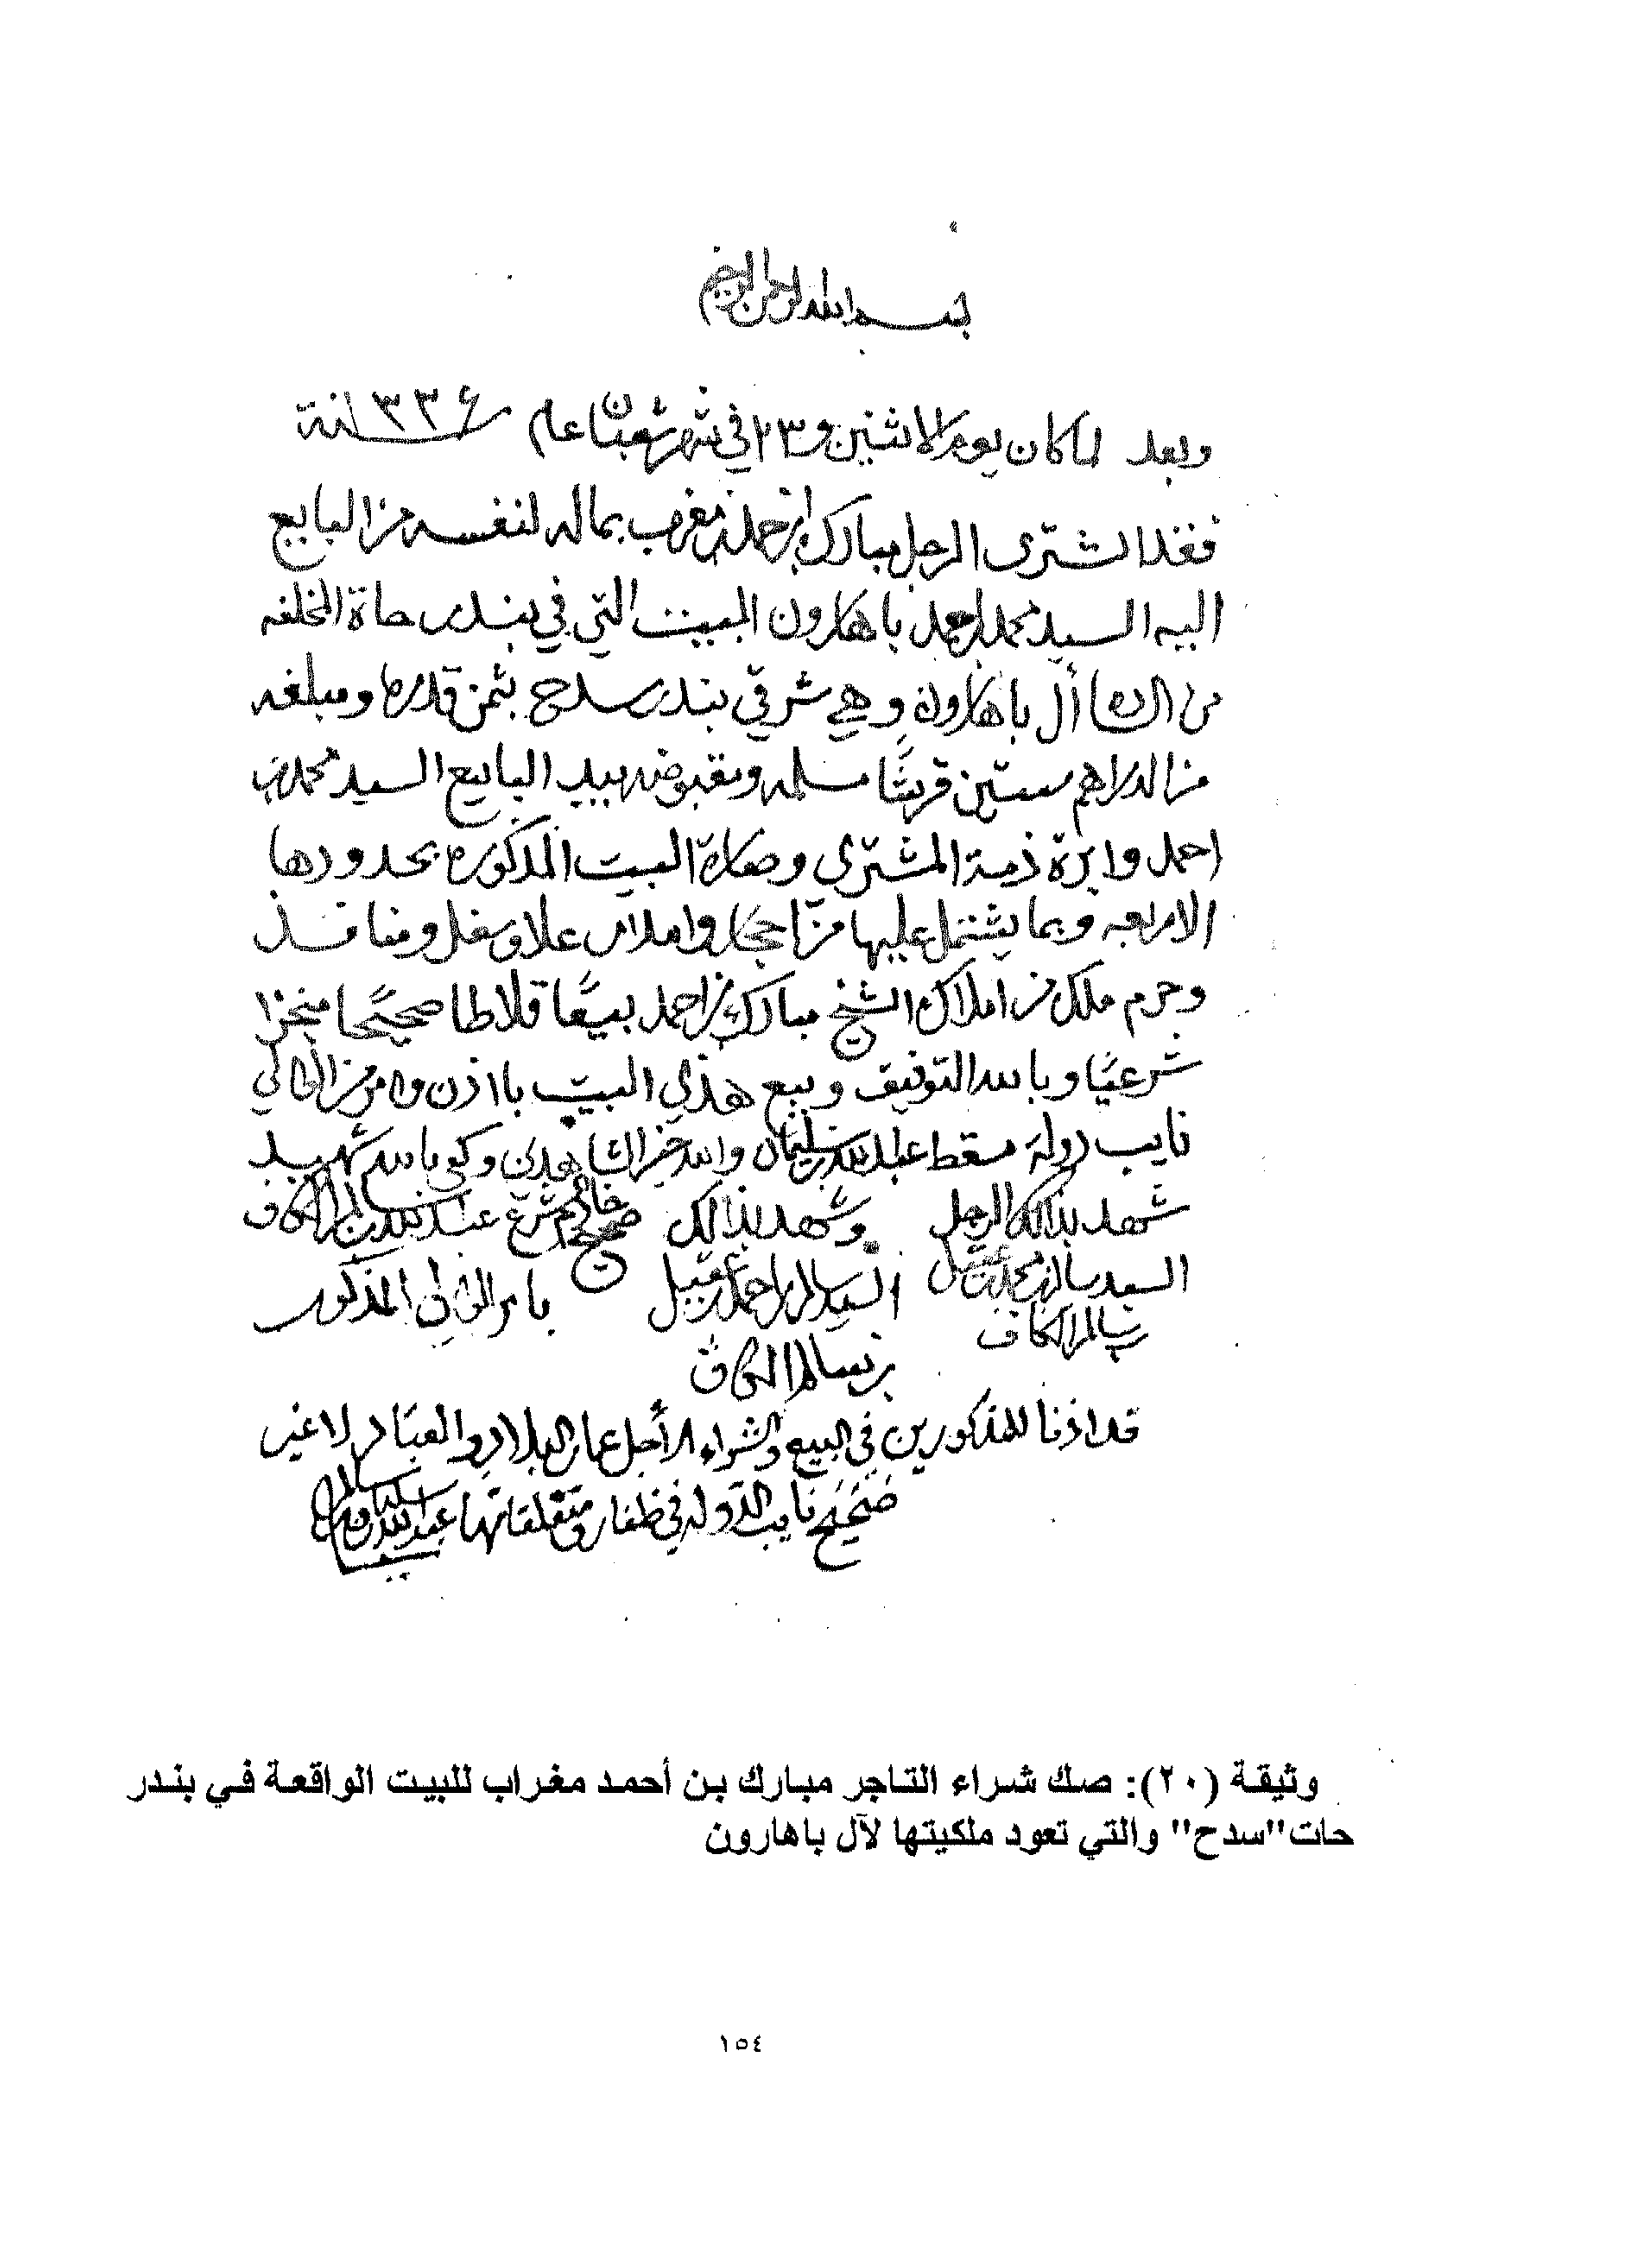 بسم الله الرحمن الرحيم
وبعد لما كان يوم الاثنين و٢٣ في شهر شعبان عام سنة ١٣٣٤
فقد اشترى الرجل مبارك ابن احمد بن مغرب بماله لنفسه من البايع
اليه السيد محمد احمد باهارون البيت التي في بندر حاة المخلفه
من أل باهارون وهي شرقي بندر سدح بثمن قدره ومبلغه
من الدراهم ستين قرشًا مسلمه ومقبوضه بيد البايع السيد محمد بن
احمد وابرة ذمة المشتري وصارة البيت المذكوره بحدودها
الاربعه وبما يشتمل عليها من احجار وامدار علا وسفل ومنافذ
وحرم ملك من املاك الشيخ مبارك بن احمد بيعًا قلاطا صحيحًا منجزا
شرعيًا وبالله التوفيق وبيع هذي البيت باذن وامر من الوالي
نايب دولة مسقط عبدالله بن سليمان والله خير الشاهدين وكفى بالله شهيد
شهد بذالك الرجل وشهد بذالك صحيح خادم شرع عبدالله بن سالم الكاف
السيد سالم بن محمد بن عقيل السيد سالم بن احمد بن عقيل بامر الوالي المذكور
بن سالم الكاف
بن سالم الكاف
قد اذنا للمذكورين في البيع والشراء لأجل عمار البلاد والعباد لا غير
صحيح نايب الدوله في ظفار ومتعلقاتها عبدالله بن سليمان
وثيقة (٢٠): صك شراء التاجر مبارك بن أحمد مغراب للبيت الواقعة في بندر
حات"سدح" والتي تعود ملكيتها لآل باهارون
١٥٤